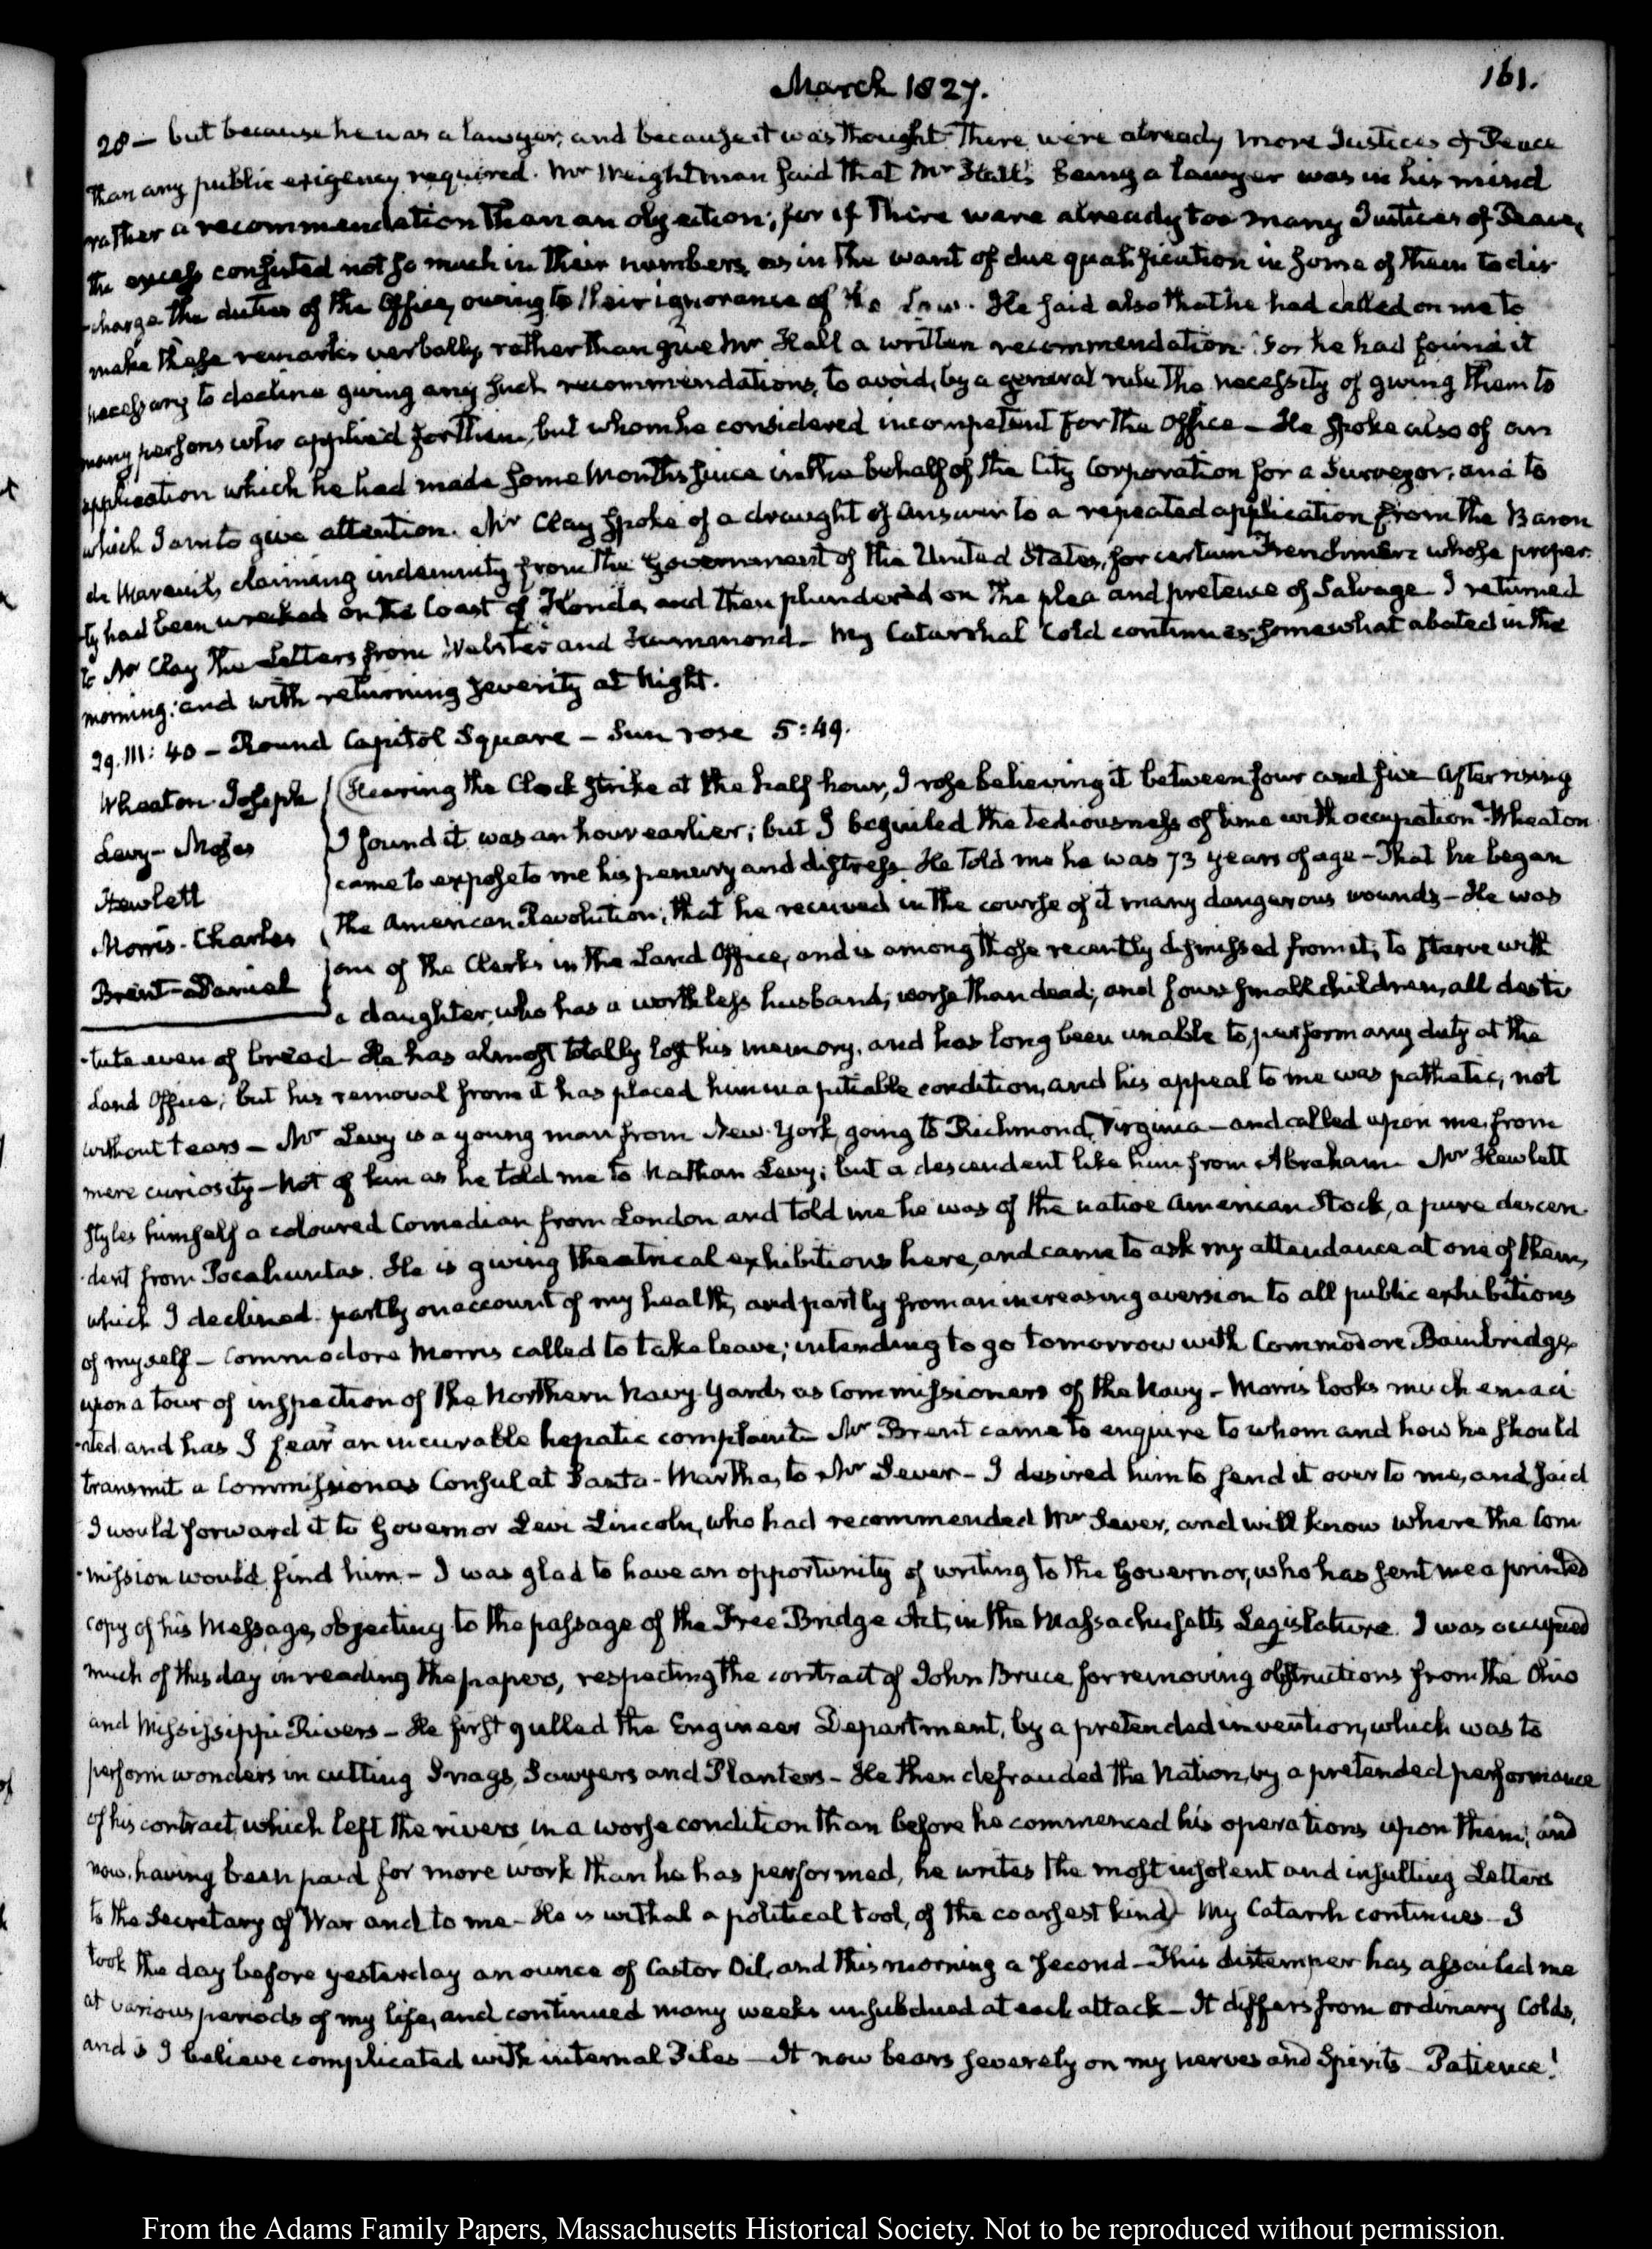 March 1827.
161.
28 — but because he was a lawyer, and because it was thought there were already more Justices of Peace
than any public exigency required. Mr Weightman said that Mr Hall's being a lawyer was in his mind
rather a recommendation than an objection; for if there were already too many Justices of Peace,
the excess consisted not so much in their numbers, as in the want of due qualification in some of them to dis-
-charge the duties of the Office, owing to their ignorance of the Law. He said also that he had called on me to
make these remarks verbally, rather than give Mr Hall a written recommendation. For he had found it
necessary to decline giving any such recommendations, to avoid, by a general rule the necessity of giving them to
many persons who applied for them, but whom he considered incompetent for the Office — He spoke also of an
application which he had made some Months since in the behalf of the City Corporation for a Surveyor; and to
which I am to give attention. Mr Clay spoke of a draught of answer to a repeated application from the Baron
de Mareuil, claiming indemnity from the Government of the United States, for certain Frenchmen whose proper-
-ty had been wrecked on the Coast of Florida, and then plundered on the plea and pretence of Salvage — I returned
to Mr Clay the Letters from Webster and Hammond — My Catarrhal Cold continues; somewhat abated in the
morning: and with returning severity at Night.
29. III: 40 — Round Capitol Square — Sun rose 5:49.
Wheaton Joseph
Levy — Moses
Hewlett
Morris — Charles
Brent — Daniel
Hearing the Clock strike at the half hour, I rose believing it between four and five. After rising
I found it was an hour earlier; but I beguiled the tediousness of time with occupation — Wheaton
came to expose to me his penury and distress. He told me he was 73 years of age — That he began
the American Revolution; that he received in the course of it many dangerous wounds — He was
one of the Clerks in the Land Office, and is among those recently dismissed from it; to starve with
a daughter, who has a worthless husband; worse than dead; and four small children, all desti-
-tute even of bread — He has almost totally lost his memory, and has long been unable to perform any duty at the
Land Office; but his removal from it has placed him in a pitiable condition, and his appeal to me was pathetic; not
without tears — Mr Levy is a young man from New-York, going to Richmond, Virginia — and called upon me, from
mere curiosity — Not of kin as he told me to Nathan Levy; but a descendent like him from Abraham. Mr Hewlett
styles himself a coloured Comedian from London and told me he was of the native American Stock, a pure descen-
-dent from Pocahuntas. He is giving theatrical exhibitions here, and came to ask my attendance at one of them,
which I declined. partly on account of my health, and partly from an increasing aversion to all public exhibitions
of myself — Commodore Morris called to take leave; intending to go tomorrow with Commodore Bainbridge,
upon a tour of inspection of the Northern Navy-Yards as Commissioners of the Navy — Morris looks much emaci-
-ated, and has I fear an incurable hepatic complaint. Mr Brent came to enquire to whom and how he should
transmit a Commission as Consul at Santa-Martha, to Mr Sever — I desired him to send it over to me, and said
I would forward it to Governor Levi Lincoln, who had recommended Mr Sever, and will know where the Com-
-mission would find him — I was glad to have an opportunity of writing to the Governor, who has sent me a printed
copy of his Message, objecting to the passage of the Free Bridge Act, in the Massachusetts Legislature. I was occupied
much of this day in reading the papers, respecting the contract of John Bruce for removing obstructions from the Ohio
and Mississippi Rivers — He first gulled the Engineer Department, by a pretended invention, which was to
perform wonders in cutting Snags, Sawyers and Planters — He then defrauded the Nation, by a pretended performance
of his contract, which left the rivers in a worse condition than before he commenced his operations upon them; and
now, having been paid for more work than he has performed, he writes the most insolent and insulting Letters
to the Secretary of War and to me — He is withal a political tool, of the coarsest kind. My Catarrh continues — I
took the day before yesterday an ounce of Castor Oil, and this morning a second — This distemper has assailed me
at various periods of my life, and continued many weeks unsubdued at each attack — It differs from ordinary Colds,
and is I believe complicated with internal Piles — It now bears severely on my nerves and Spirits — Patience!
From the Adams Family Papers, Massachusetts Historical Society. Not to be reproduced without permission.